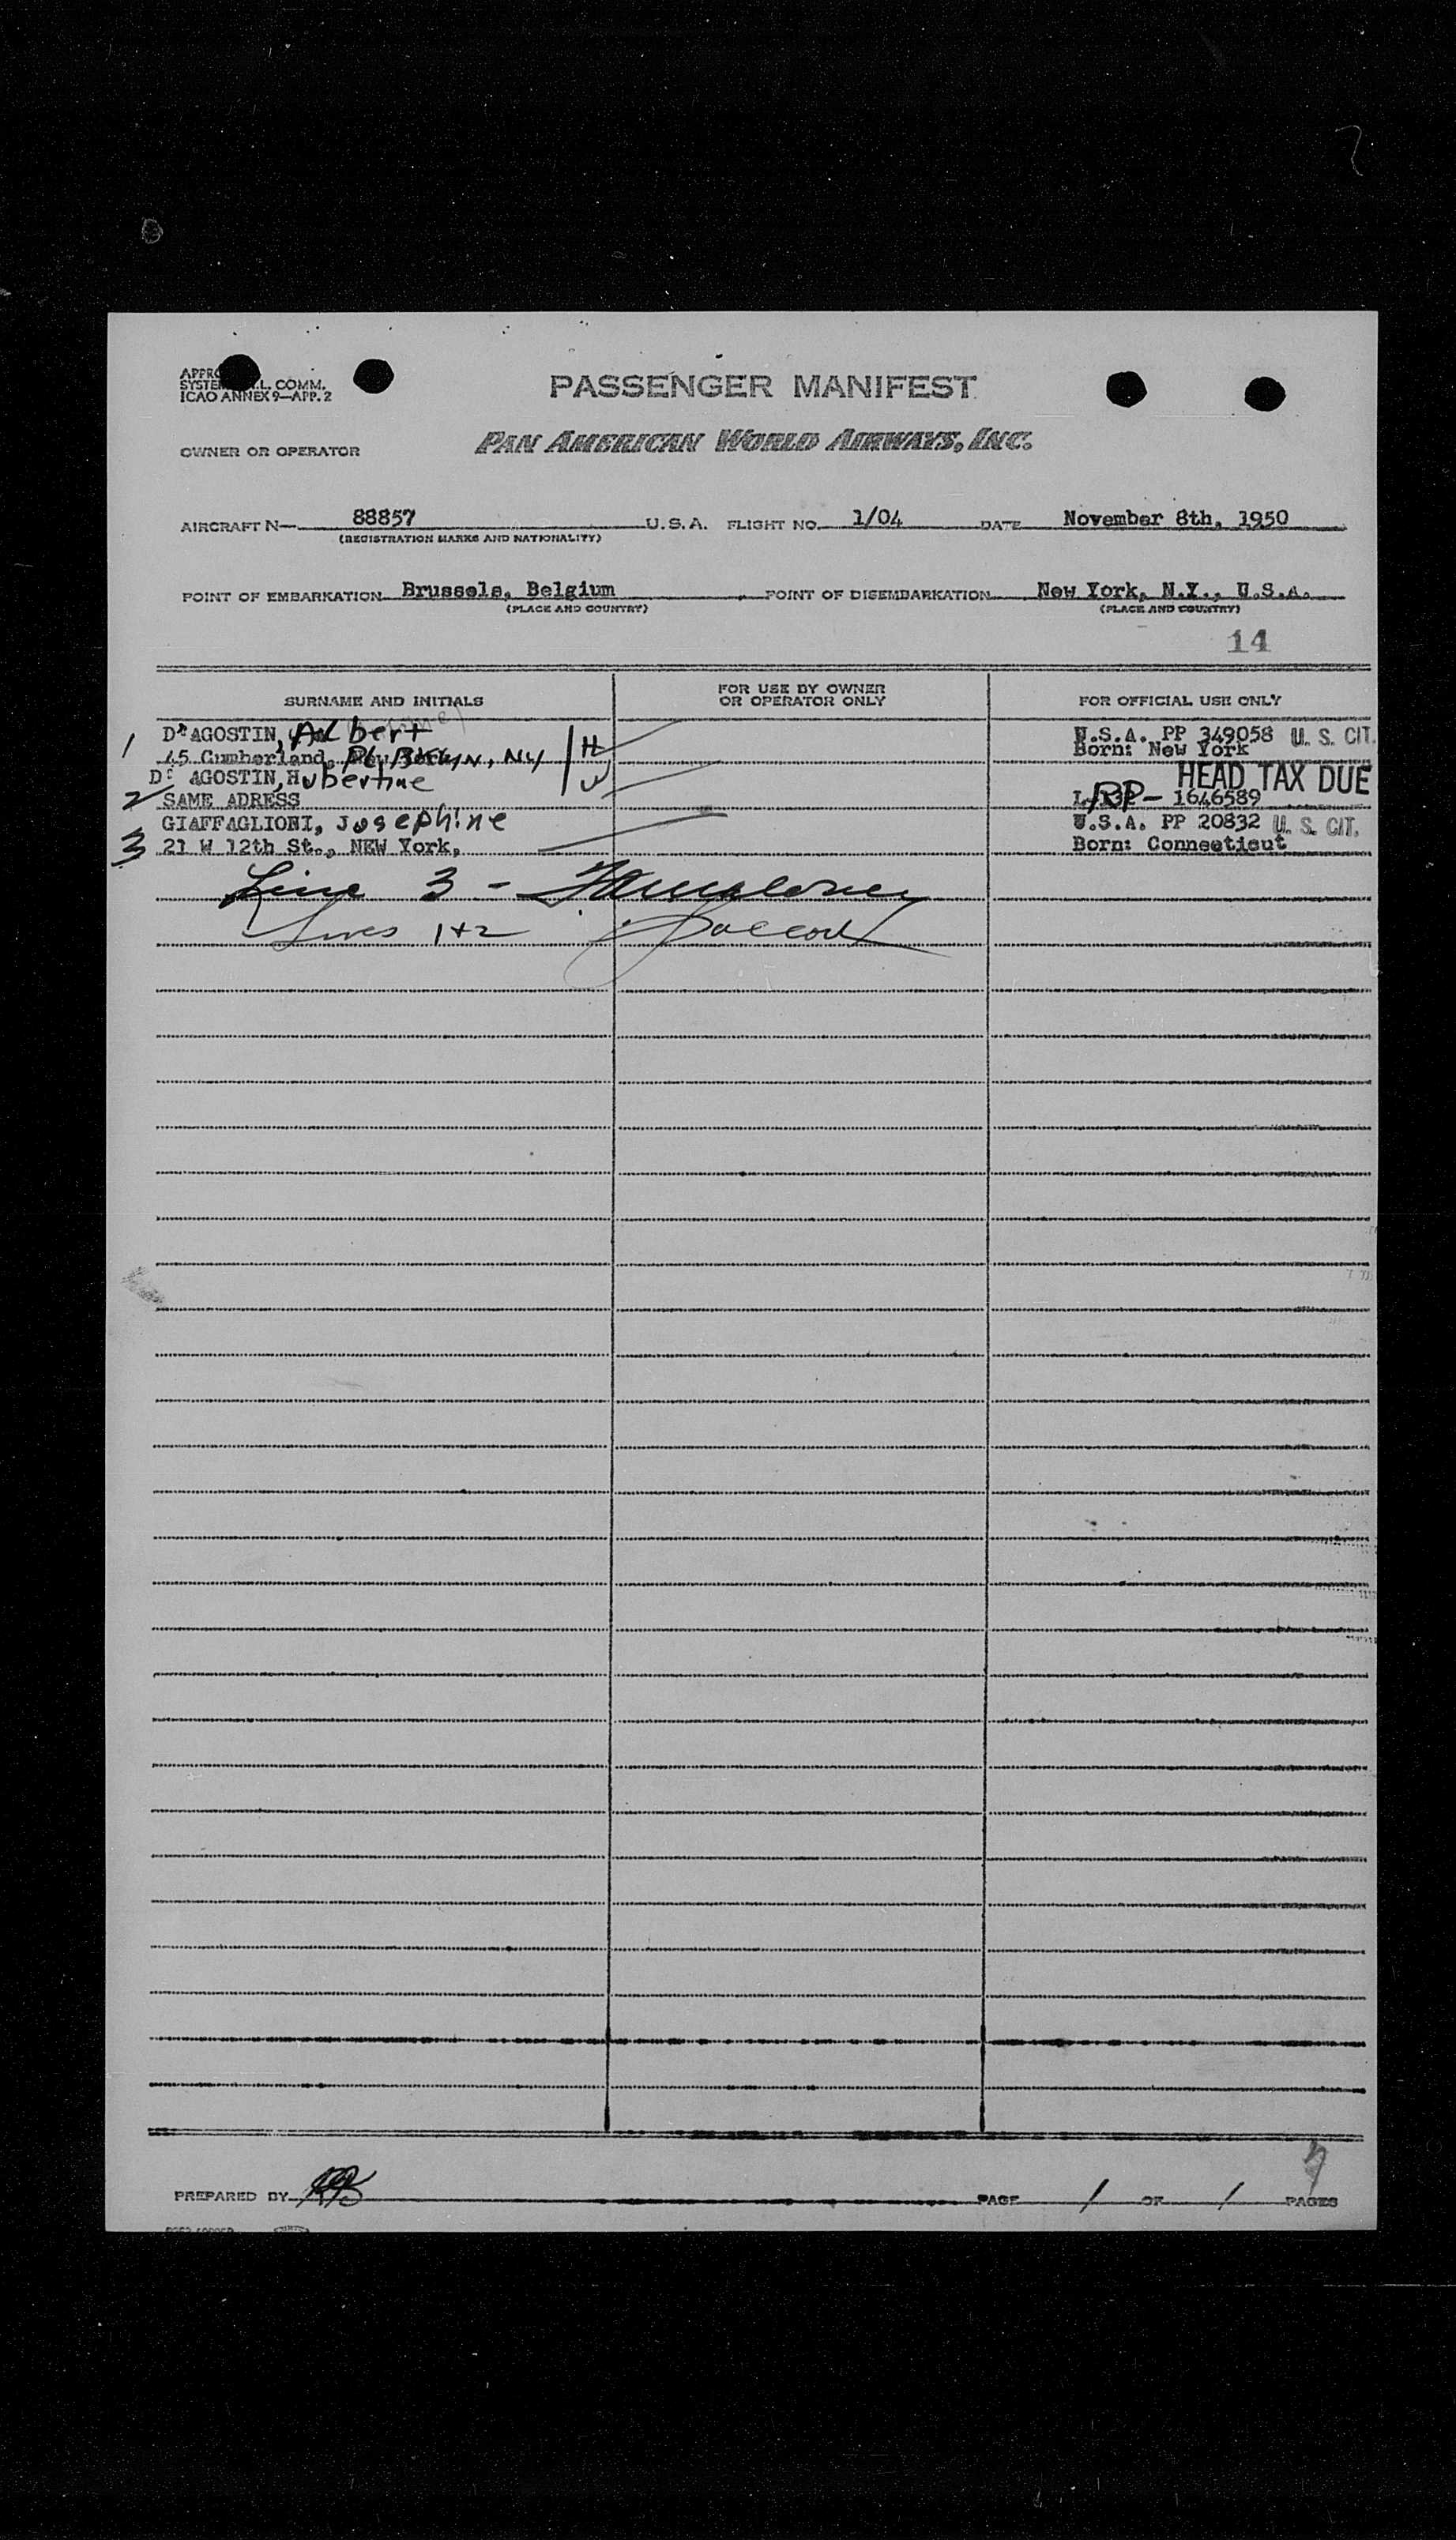 SYSTE L. COMM.
ICAO ANNEX 9—APP. 2
PASSENGER MANIFEST
OWNER OR OPERATOR PAN AMERICAN WORLD AIRWAYS, INC.
AIRCRAFT N— 88857 U. S. A. FLIGHT NO. 1/04 DATE November 8th, 1950
(REGISTRATION MARKS AND NATIONALITY)
POINT OF EMBARKATION Brussels, Belgium POINT OF DISEMBARKATION New York, N.Y., U.S.A.
(PLACE AND COUNTRY) (PLACE AND COUNTRY)
14
SURNAME AND INITIALS FOR USE BY OWNER OR OPERATOR ONLY FOR OFFICIAL USE ONLY
1 D'AGOSTIN, Albert U.S.A. PP 349058 U. S. CIT.
45 Cumberland, Brooklyn, NY H Born: New York
D' AGOSTIN, Hubertine W HEAD TAX DUE
2 SAME ADRESS RP — 1646589
GIAFFAGLIONI, Josephine U.S.A. PP 20832 U. S. CIT.
3 21 W 12th St., NEW York, Born: Connecticut
Line 3 -
Lines 1+2
PREPARED BY PAGE 1 OF 1 PAGES